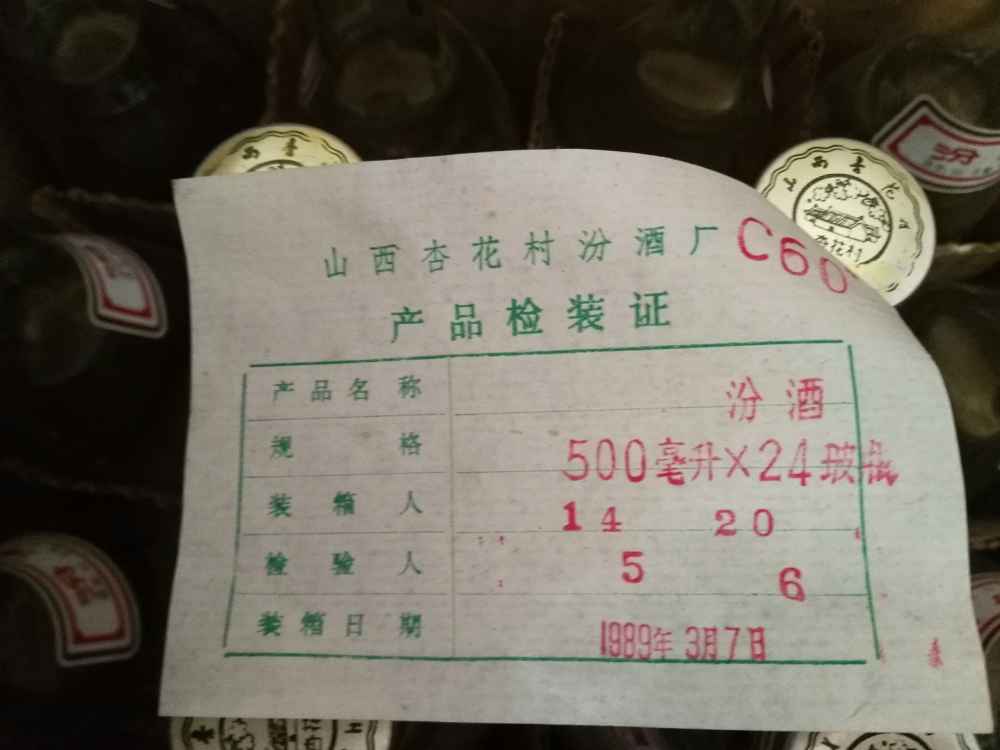 山西杏花村汾酒厂 C60
产品检装证
产品名称 汾酒
规格 500毫升×24玻
装箱人 14 20
检验人 5 6
装箱日期 1989年3月7日
山西杏花
杏花村
汾